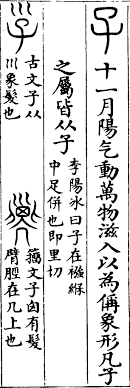 子十一月陽气動萬物滋入以為偁象形凡子
之屬皆从子
李陽冰曰子在襁緥
中足併也即里切
古文子从
川象髮也
籒文子囟有髮
臂脛在几上也